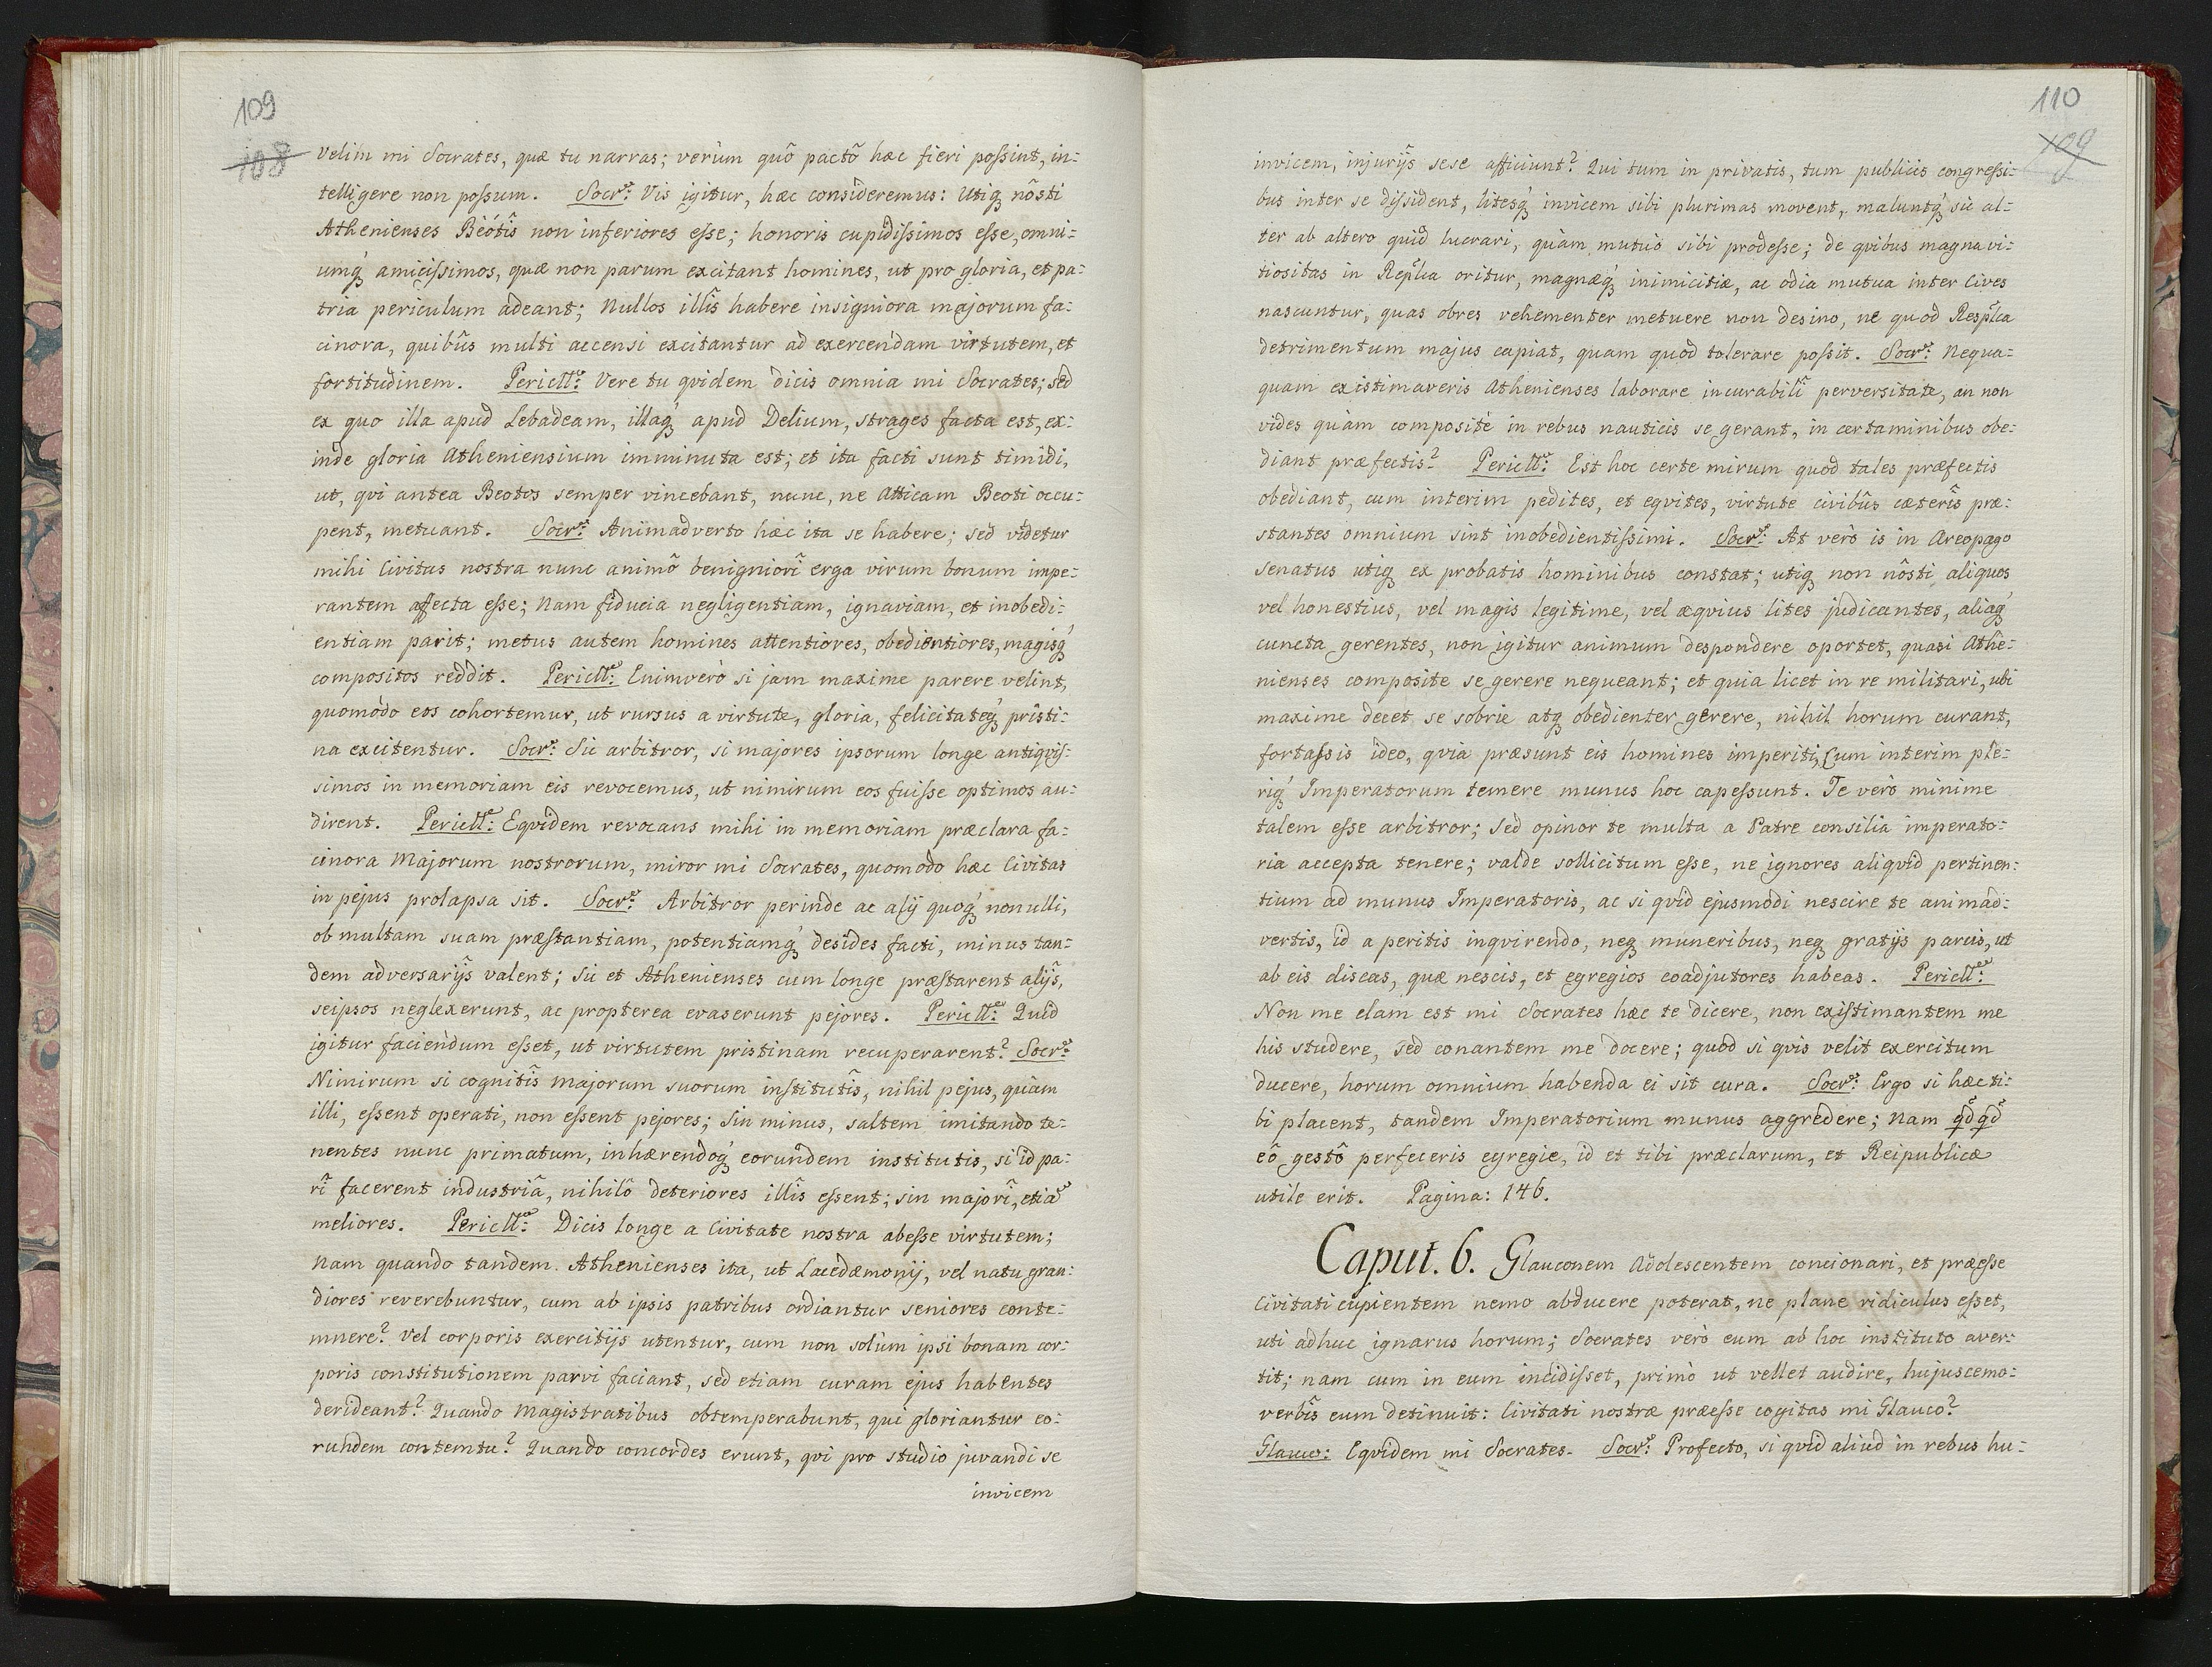 109
108
velim mi Socrates, quæ tu narras; verùm quô pactô hæc fieri poſsint, in:
telligere non poſsum. Socr: Vis igitur, hæc consideremus: Utiq nôsti
Athenienses Béótîs non inferiores eſse; honoris cupidiſsimos eſse, omni:
umq́ amiciſsimos, quæ non parum excitant homines, ut pro gloria, et pa:
tria periculum adeant; Nullos illîs habere insigniora majorum fa:
cinora, quibûs multi accensi excitantur ad exercendam virtutem, et
fortitudinem. Pericll: Vere tu qvidem dicis omnia mi Socrates; sed
ex quo illa apud Lebadeam, illaq́ apud Delium, strages facta est, ex:
inde gloria Atheniensium imminuta est; et ita facti sunt timidi,
ut, qvi antea Beotos semper vincebant, nunc, ne Atticam Beoti occu:
pent, metuant. Socr: Animadverto hæc ita se habere; sed videtur
mihi Civitas nostra nunc animô benigniorî erga virum bonum impe:
rantem affecta eſse; Nam fiducia negligentiam, ignaviam, et inobedi:
entiam parit; metus autem homines attentiores, obedientiores, magisq́
compositos reddit. Pericll: Enimverò si jam maxime parere velint,
quomodo eos cohortemur, ut rursus a virtute, gloria, felicitateq́ pristi:
na excitentur. Socr: Sic arbitror, si majores ipsorum longe antiqviſ:
simos in memoriam eis revocemus, ut nimirum eos fuiſse optimos au:
dirent. Pericll: Eqvidem revocans mihi in memoriam præclara fa:
cinora Majorum nostrorum, miror mi Socrates, quomodo hæc Civitas
in pejus prolapsa sit. Socr: Arbitror perinde ac alij quoq́ nonulli,
ob multam suam præstantiam, potentiamq́ desides facti, minus tan:
dem adversarijs valent; sic et Athenienses cum longe præstarent alijs,
seipsos neglexerunt, ac propterea evaserunt pejores. Pericll: Quid
igitur faciendum eſset, ut virtutem pristinam recuperarent? Socr:
Nimirum si cognitîs majorum suorum institutîs, nihil pejus, quàm
illi, eſsent operati, non eſsent pejores; sin minus, saltem imitando te:
nentes nunc primatum, inhærendoq́ eorundem institutis, si id pa:
rî facerent industriâ, nihilô deteriores illîs eſsent; sin majorî, etiã
meliores. Pericll: Dicis longe a Civitate nostra abeſse virtutem;
Nam quando tandem Athenienses ita, ut Lacedæmonij, vel natu gran:
diores reverebuntur, cum ab ipsis patribus ordiantur seniores conte:
mnere? Vel corporis exercitijs utentur, cum non solùm ipsi bonam cor:
poris constitutionem parvi faciant, sed etiam curam ejus habentes
derideant? Quando Magistratibus obtemperabunt, qui gloriantur eo:
rundem contemtu? Quando concordes erunt, qvi pro studio juvandi se
invicem
110
109
invicem, injurijs sese afficiunt? Qui tum in privatis, tum publicis congreſsi:
bus inter se diſsident, litesq́ invicem sibi plurimas movent, maluntq́ sic al:
ter ab altero quid lucrari, quàm mutuò sibi prodesse; de qvibus magna vi:
tiositas in Repl̃ca oritur, magnæq́ inimicitiæ, ac odia mutua inter Cives
nascuntur, quas obres vehementer metuere non desino, ne quod Respl̃ca
detrimentum majus capiat, quam quod tolerare poſsit. Socr: Nequa:
quam existimaveris Athenienses laborare incurabilî perversitate, an non
vides quàm compositè in rebus nauticis se gerant, in certaminibus obe:
diant præfectis? Pericll: Est hoc certe mirum quod tales præfectis
obediant, cum interim pedites, et eqvites, virtute civibûs cæterîs præ:
stantes omnium sint inobedientiſsimi. Socr: At verò is in Areopago
senatus utiq ex probatis hominibus constat; utiq non nôsti aliquos
vel honestius, vel magis legitime, vel æqvius lites judicantes, aliaq́
cuncta gerentes, non igitur animum despondere oportet, quasi Athe:
nienses composite se gerere nequeant; et quia licet in re militari, ubi
maxime decet se sobrie atq obedienter gerere, nihil horum curant,
fortaſsis ideo, qvia præsunt eis homines imperiti, Cum interim ple:
riq́ Imperatorum temere munus hoc capeſsunt. Te verò minime
talem eſse arbitror; sed opinor te multa a Patre consilia imperato:
ria accepta tenere; valde sollicitum eſse, ne ignores aliqvid pertinen:
tium ad munus Imperatoris, ac si qvid ejusmodi nescire te animad:
vertis, id a peritis inqvirendo, neq muneribus, neq gratijs parcis, ut
ab eis discas, quæ nescis, et egregios coadjutores habeas. Pericll:
Non me clam est mi Socrates hæc te dicere, non existimantem me
his studere, sed conantem me docere; quod si qvis velit exercitum
ducere, horum omnium habenda ei sit cura. Socr: Ergo si hæc ti:
bi placent, tandem Imperatorium munus aggredere; Nam q̃dq̃d
eô gestô perfeceris egregie, id et tibi præclarum, et Reipublicæ
utile erit. Pagina: 146.
Caput. 6. Glauconem Adolescentem concionari, et præeſse
Civitati cupientem nemo abducere poterat, ne plane ridiculus eſset,
uti adhuc ignarus horum; Socrates verò eum ab hoc instituto aver:
tit; nam cum in eum incidiſset, primò ut vellet audire, hujuscemo:
verbîs eum detinuit: Civitati nostræ præeſse cogitas mi Glauco?
Glauco: Eqvidem mi Socrates. Socr: Profecto, si qvid aliud in rebus hu: